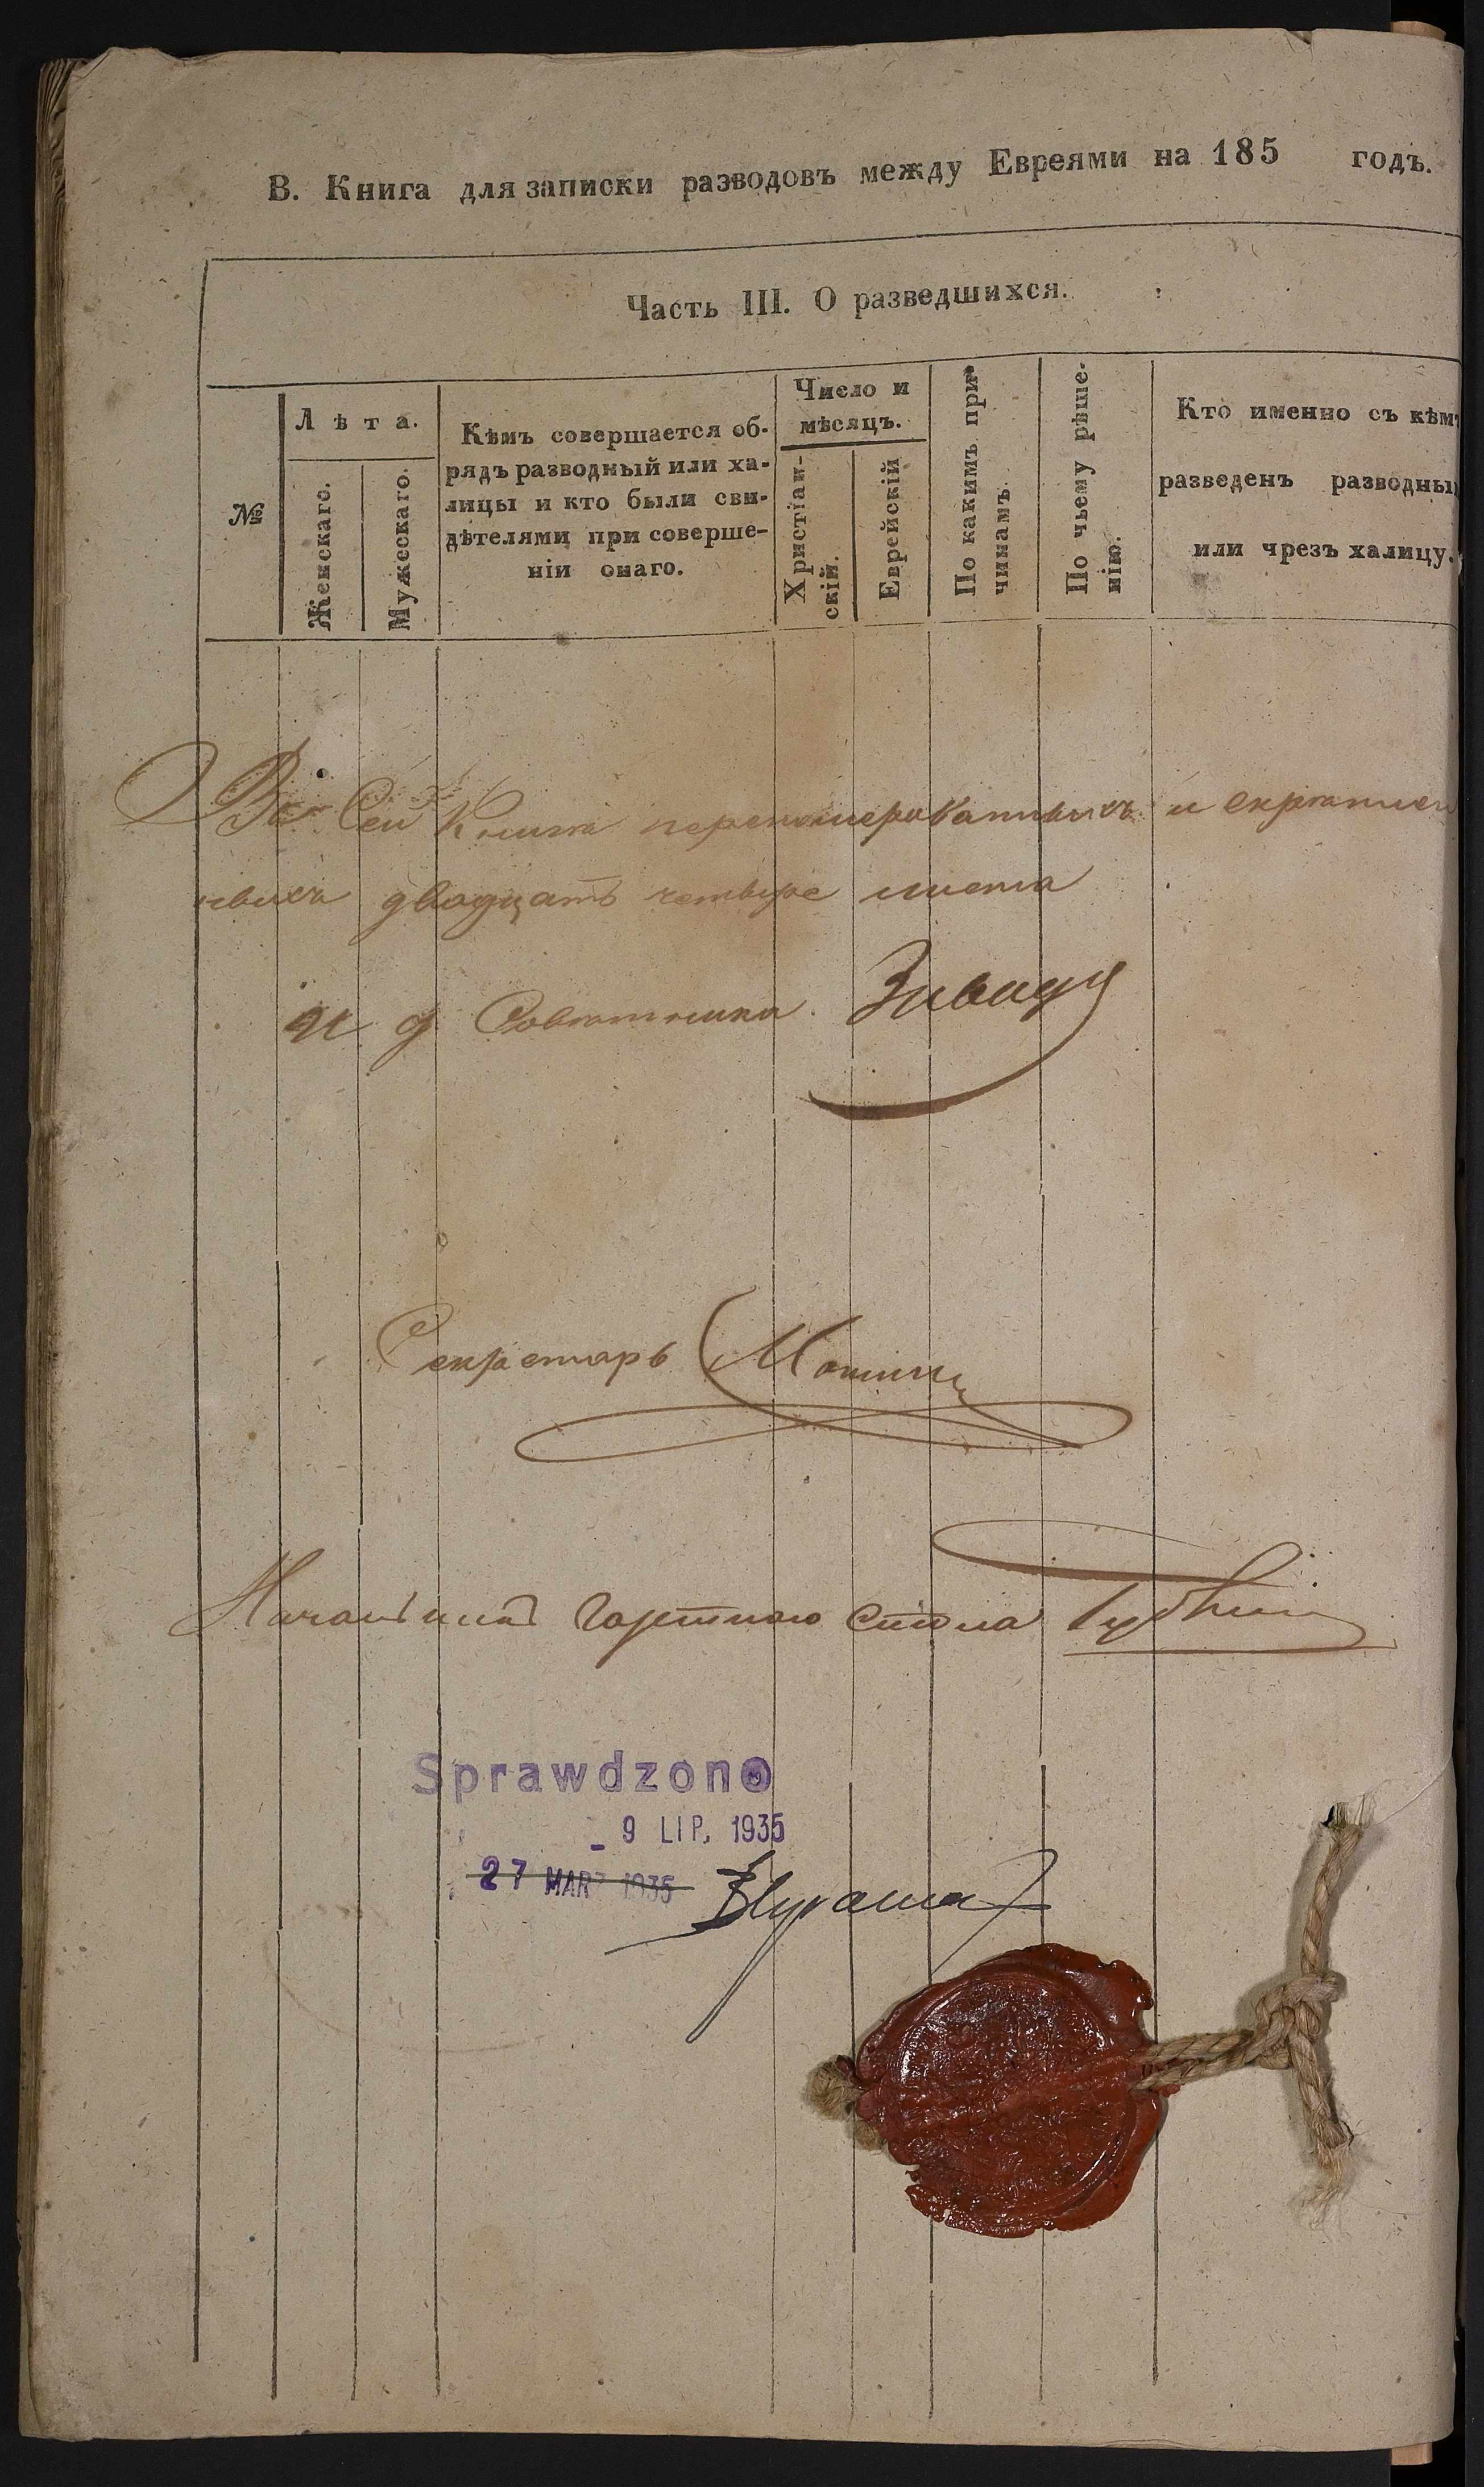 В. Книга для записки разводовъ между Евреями на 185 годъ.
Часть III. О разведшихся.
№
Лѣта.
Женскаго.
Мужескаго.
Кѣмъ совершается об-
рядъ разводный или ха-
лицы и кто были сви-
дѣтелями при соверше-
ніи онаго.
Число и
мѣсяцъ.
Христіан-
скій.
Еврейскій
По какимъ при-
чинамъ.
По чьему рѣше-
нію.
Кто именно съ кѣмъ
разведенъ разводный
или чрезъ халицу.
Въ Сей Книгѣ перенумерованныхъ и скрѣплен
ныхъ двадцать четыре листа
И д Совѣтника
Секретарь
Начальникъ Газетнаго Стола
Sprawdzono
- 9 LIP. 1935
27 MAR 1935